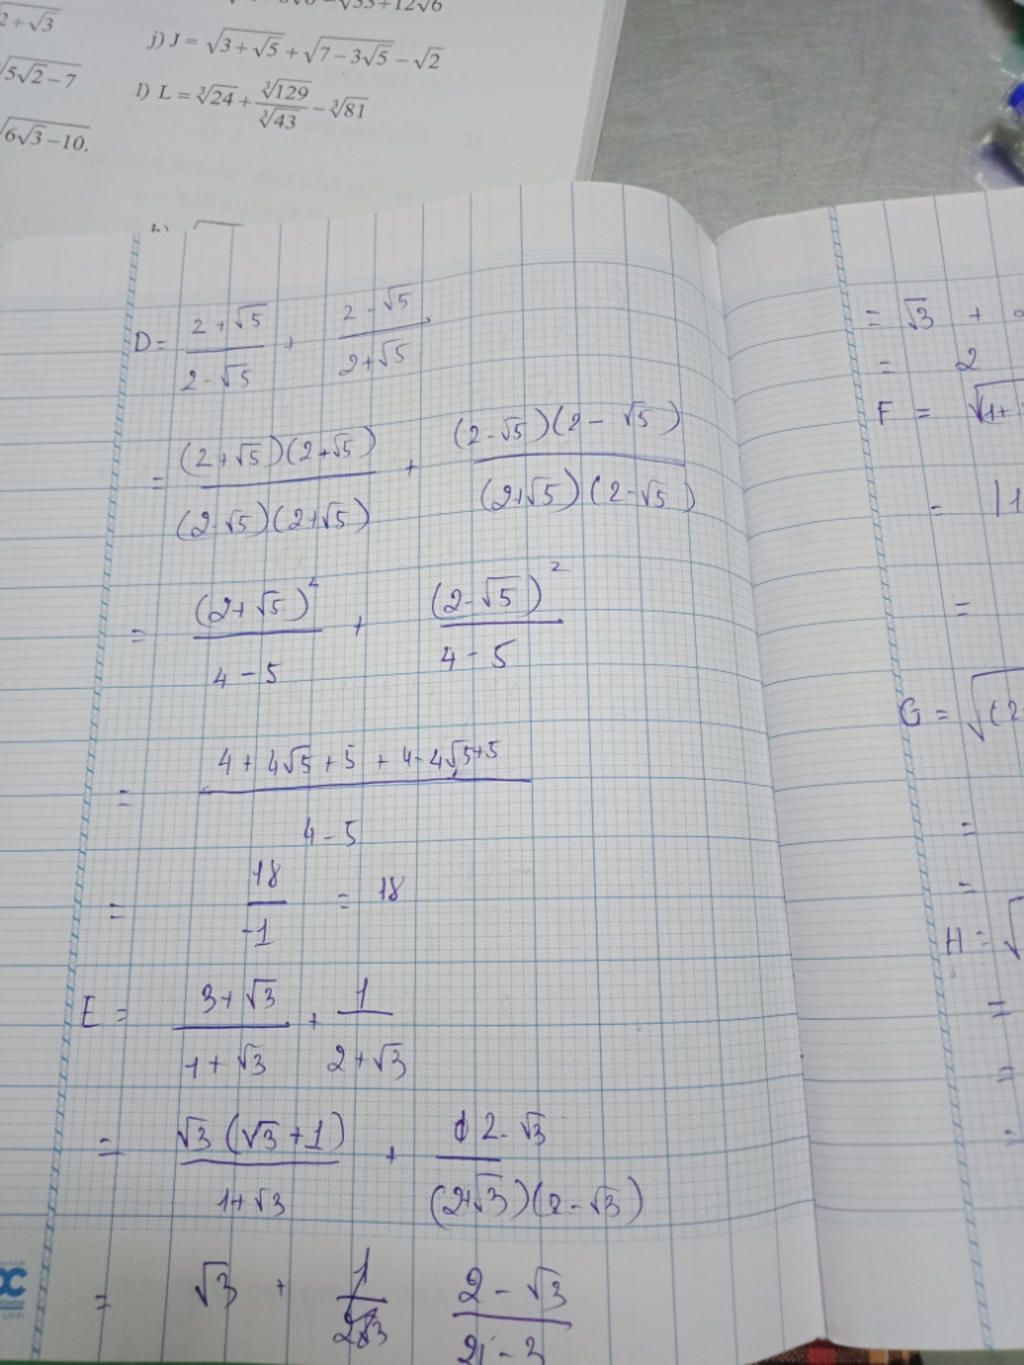 2+√3
√33+12√6
j) J = √(3+√5) + √(7−3√5) − √2
5√2−7
l) L = ∛24 + ∛129/∛43 − ∛81
6√3−10.
D = (2+√5)/(2-√5) + (2-√5)/(2+√5)
= (2+√5)(2+√5)/(2-√5)(2+√5) + (2-√5)(2-√5)/(2+√5)(2-√5)
= (2+√5)²/(4-5) + (2-√5)²/(4-5)
= (4+4√5+5+4-4√5+5)/(4-5)
= 18/-1 = 18
E = (3+√3)/(1+√3) + 1/(2+√3)
= √3(√3+1)/(1+√3) + (2-√3)/(2+√3)(2-√3)
= √3 + (2-√3)/
= √3 +
= 2
F = √1+
= |1
=
G = √(2
=
=
H = √
=
=
=